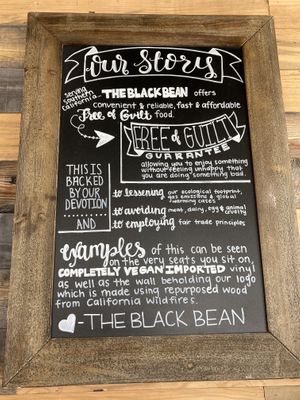 Our Story
Serving Southern California
THE BLACK BEAN offers
convenient & reliable, fast & affordable
Free of Guilt food.
FREE of GUILT
GUARANTEE
allowing you to enjoy something
without feeling unhappy that
you are doing something bad.
THIS IS
BACKED
BY OUR
DEVOTION
AND
to lessening our ecological footprint,
gas emissions & global
warming cases
to avoiding meat, dairy, egg & animal
cruelty
to employing fair trade principles
Examples of this can be seen
on the very seats you sit on,
COMPLETELY VEGAN IMPORTED vinyl
as well as the wall beholding our logo
which is made using repurposed wood
from California Wildfires.
-THE BLACK BEAN